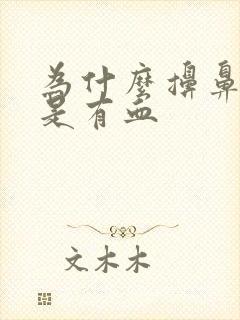 為什麼擤鼻
是有血
文木木